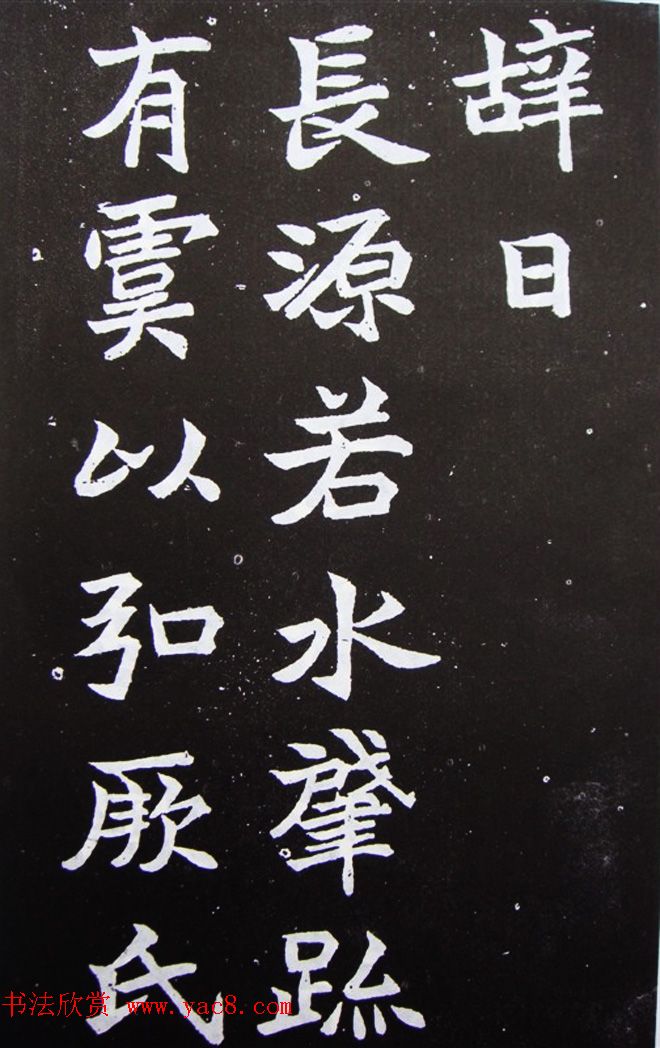 辞曰
長源若水肇跡
有虞以弘厥氏
书法欣赏 www.yac8.com